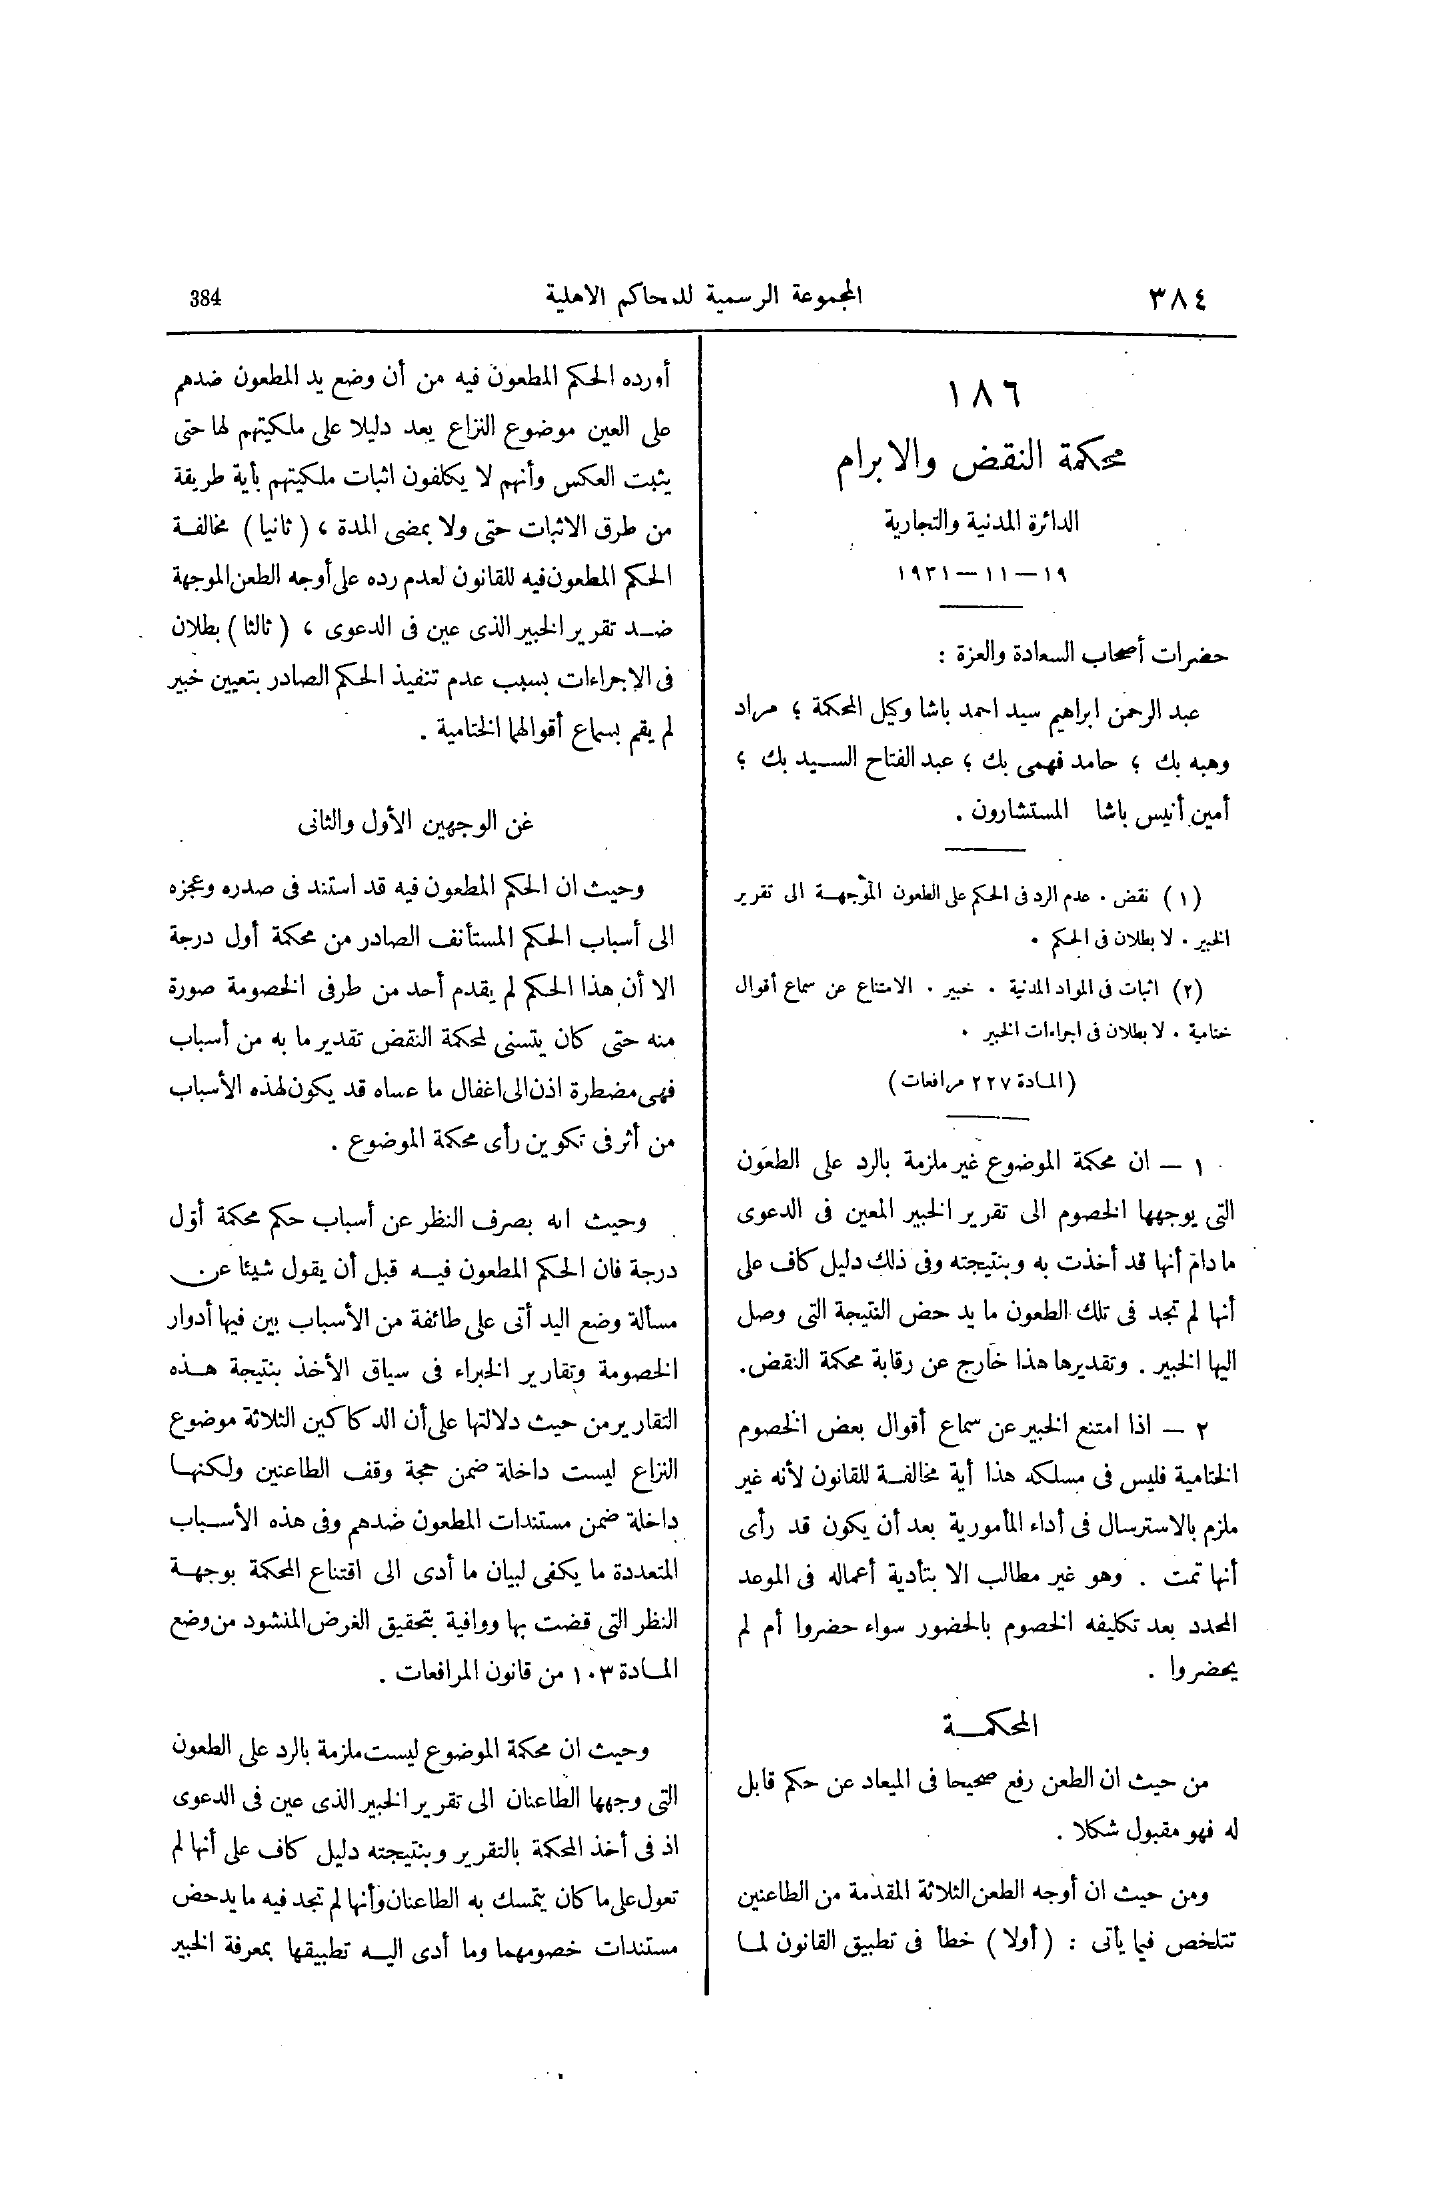 ٣٨٤
المجموعة الرسمية للمحاكم الاهلية
384
١٨٦
محكمة النقض والابرام
الدائرة المدنية والتجارية
١٩ — ١١ — ١٩٣١
حضرات أصحاب السعادة والعزة :
عبد الرحمن ابراهيم سيد احمد باشا وكيل المحكمة ؛ مراد
وهبه بك ؛ حامد فهمى بك ؛ عبد الفتاح السيد بك ؛
أمين أنيس باشا المستشارون .
(١) نقض . عدم الرد فى الحكم على الطعون الموجهة الى تقرير
الخبير . لا بطلان فى الحكم .
(٢) اثبات فى المواد المدنية . خبير . الامتناع عن سماع أقوال
ختامية . لا بطلان فى اجراءات الخبير .
(المادة ٢٢٧ مرافعات)
١ — ان محكمة الموضوع غير ملزمة بالرد على الطعون
التى يوجهها الخصوم الى تقرير الخبير المعين فى الدعوى
ما دام أنها قد أخذت به وبنتيجته وفى ذلك دليل كاف على
أنها لم تجد فى تلك الطعون ما يدحض النتيجة التى وصل
اليها الخبير . وتقديرها هذا خارج عن رقابة محكمة النقض.
٢ — اذا امتنع الخبير عن سماع أقوال بعض الخصوم
الختامية فليس فى مسلكه هذا أية مخالفة للقانون لأنه غير
ملزم بالاسترسال فى أداء المأمورية بعد أن يكون قد رأى
أنها تمت . وهو غير مطالب الا بتأدية أعماله فى الموعد
المحدد بعد تكليفه الخصوم بالحضور سواء حضروا أم لم
يحضروا .
المحكمة
من حيث ان الطعن رفع صحيحا فى الميعاد عن حكم قابل
له فهو مقبول شكلا .
ومن حيث ان أوجه الطعن الثلاثة المقدمة من الطاعنين
تتلخص فيما يأتى : (أولا) خطأ فى تطبيق القانون لما
أورده الحكم المطعون فيه من أن وضع يد المطعون ضدهم
على العين موضوع النزاع يعد دليلا على ملكيتهم لها حتى
يثبت العكس وأنهم لا يكلفون اثبات ملكيتهم بأية طريقة
من طرق الاثبات حتى ولا بمضى المدة ، (ثانيا) مخالفة
الحكم المطعون فيه للقانون لعدم رده على أوجه الطعن الموجهة
ضد تقرير الخبير الذى عين فى الدعوى ، (ثالثا) بطلان
فى الاجراءات بسبب عدم تنفيذ الحكم الصادر بتعيين خبير
لم يقم بسماع أقوالهما الختامية .
عن الوجهين الأول والثانى
وحيث ان الحكم المطعون فيه قد استند فى صدره وعجزه
الى أسباب الحكم المستأنف الصادر من محكمة أول درجة
الا أن هذا الحكم لم يقدم أحد من طرفى الخصومة صورة
منه حتى كان يتسنى لمحكمة النقض تقدير ما به من أسباب
فهى مضطرة اذن الى اغفال ما عساه قد يكون لهذه الأسباب
من أثر فى تكوين رأى محكمة الموضوع .
وحيث انه بصرف النظر عن أسباب حكم محكمة أول
درجة فان الحكم المطعون فيه قبل أن يقول شيئا عن
مسألة وضع اليد أتى على طائفة من الأسباب بين فيها أدوار
الخصومة وتقارير الخبراء فى سياق الأخذ بنتيجة هذه
التقارير من حيث دلالتها على أن الدكاكين الثلاثة موضوع
النزاع ليست داخلة ضمن حجة وقف الطاعنين ولكنها
داخلة ضمن مستندات المطعون ضدهم وفى هذه الأسباب
المتعددة ما يكفى لبيان ما أدى الى اقتناع المحكمة بوجهة
النظر التى قضت بها ووافية بتحقيق الغرض المنشود من وضع
المادة ١٠٣ من قانون المرافعات .
وحيث ان محكمة الموضوع ليست ملزمة بالرد على الطعون
التى وجهها الطاعنان الى تقرير الخبير الذى عين فى الدعوى
اذ فى أخذ المحكمة بالتقرير وبنتيجته دليل كاف على أنها لم
تعول على ما كان يتمسك به الطاعنان وأنها لم تجد فيه ما يدحض
مستندات خصومهما وما أدى اليه تطبيقها بمعرفة الخبير